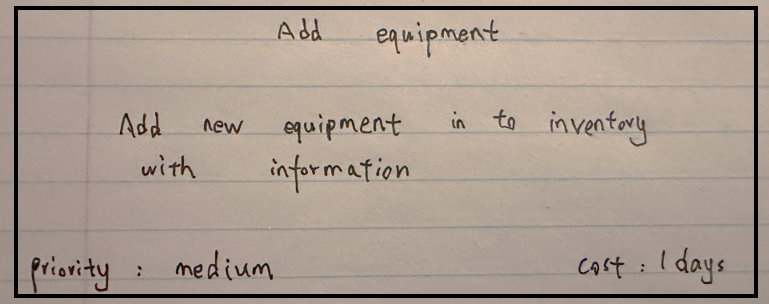 Add equipment
Add new equipment in to inventory
with information
priority : medium cost : 1 days